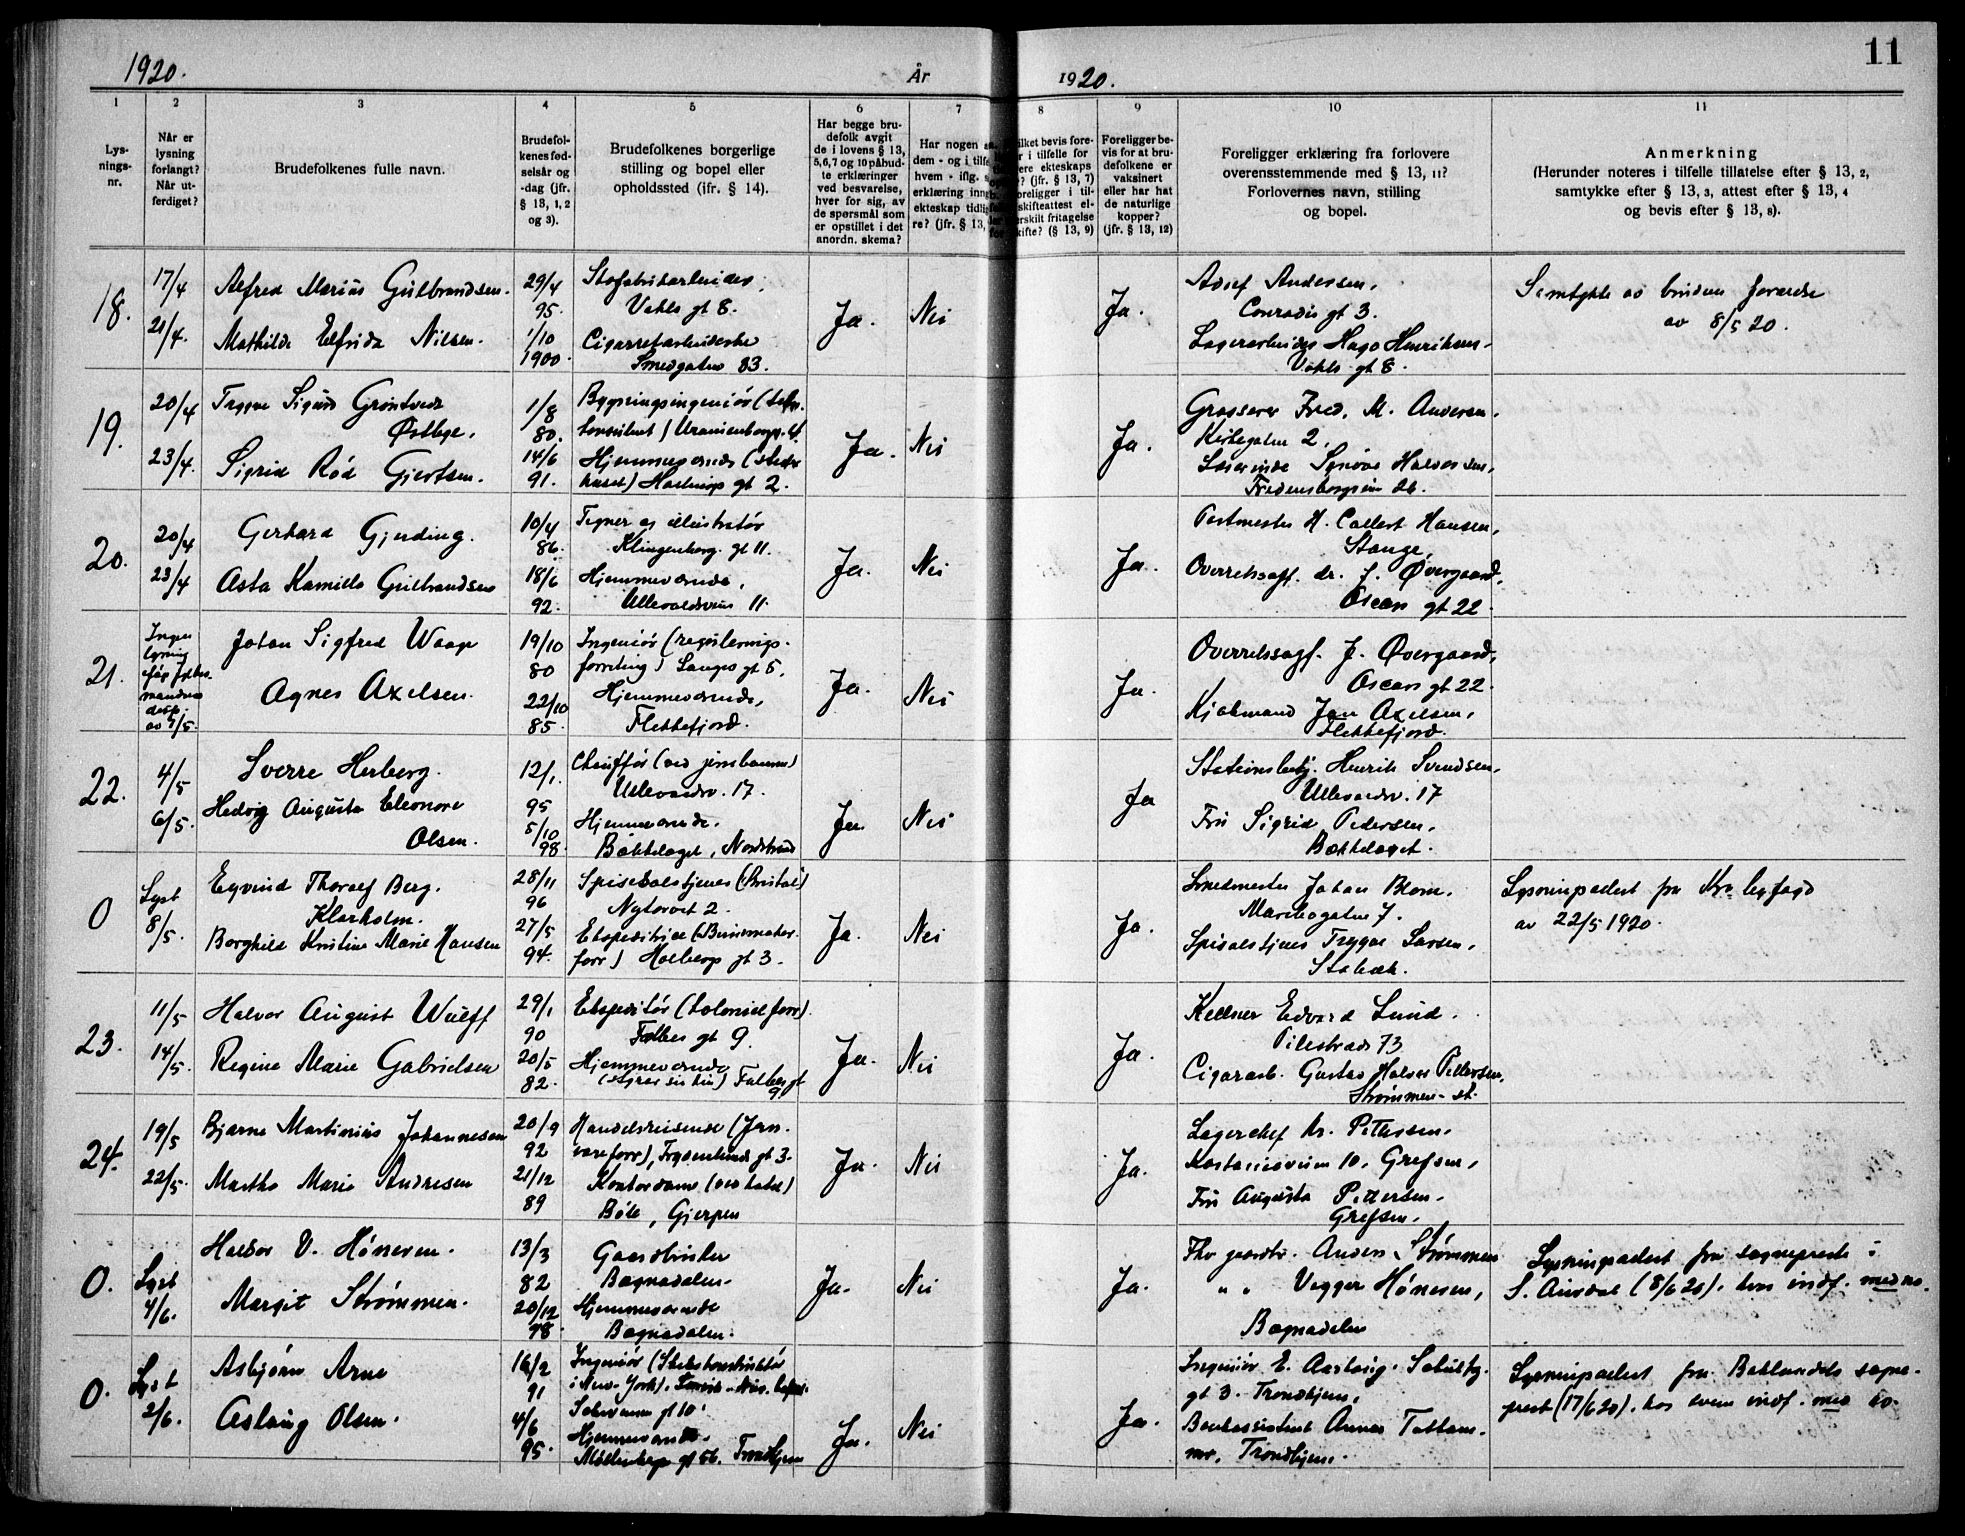 1920.
År
1920.
11
1
2
3
4
5
6
7
8
9
10
11
Lys-
nings-
nr.
Når er
lysning
forlangt?
Når ut-
ferdiget?
Brudefolkenes fulle navn.
Brudefol-
kenes fød-
selsår og
-dag (jfr.
§ 13, 1, 2
og 3).
Brudefolkenes borgerlige
stilling og bopel eller
opholdssted (ifr. § 14).
Har begge bru-
defolk avgit
de i lovens § 13,
5, 6, 7 og 10 påbud-
te erklæringer
ved besvarelse,
hver for sig, av
de spørsmål som
er opstillet i det
anordn. skema?
Har nogen a
dem - og i tilfe
hvem - iflg. s
erklæring inne
ekteskap tidli
re? (jfr. § 13,
ilket bevis fore-
r i tilfelle for
ere ekteskaps
? (jfr. § 13, 7)
oreligger i til-
skifteattest el-
erskilt fritagelse
kifte? (§ 13, 9)
Foreligger be-
vis for at bru-
defolkene er
vaksinert
eller har hat
de naturlige
kopper?
(jfr. § 13, 12)
Foreligger erklæring fra forlovere
overensstemmende med § 13, 11?
Forlovernes navn, stilling
og bopel.
Anmerkning
(Herunder noteres i tilfelle tillatelse efter § 13, 2,
samtykke efter § 13, 3, attest efter § 13, 4
og bevis efter § 13, 8).
18.
17/4
21/4.
Alfred Marius Gulbrandsen.
Mathilde Elfrida Nilsen.
29/4
95.
1/10
1900.
Vahls gt 8.
Cigarretarbeiderske
Smedgaten 83.
Ja.
Nei
Ja.
Adolf Andersen,
Conradis gt 3.
Lagerarbeider Hugo Henriksen
Vahls gt 8.
Samtykke av brudens forældre
av 8/5 20.
19.
20/4
23/4.
Trygve Sigurd Grøntvedt
Østbye.
Sigrid Rød Gjertsen.
1/8
80.
14/6
91.
Bygningsingeniør (tekn.
konsulent) Uranienborgv. 4.
Hjemmeværende
gt 2.
Ja.
Nei
Ja.
Grosserer Fred. M. Andersen.
Kirkegaten 2.
Lærerinde Synøve Halvorsen,
Fredensborgvein 26.
20.
20/4
23/4
Gerhard Gjerding.
Asta Kamilla Gulbrandsen
10/4
86.
18/6
92.
Tegner og illustratør
Klingenberg. gt 11.
Hjemmeværende,
Ullevaldsvein 11.
Ja.
Nei
Ja.
Postmester H. Collett Hansen,
Stange.
Overretssagf. dr. J. Øvergaard,
Oscars gt 22.
21.
Ingen
lysning
ifølge fylkes-
mandens
disp.
av 4/5.
Johan Sigfred Waage
Agnes Axelsen.
19/10
80
22/10
85.
Ingeniør (regulerings-
forretning) Langes gt 5,
Hjemmeværende,
Flekkefjord.
Ja.
Nei
Ja.
Overretssagf. J. Øvergaard,
Oscars gt 22.
Kjøbmand Jon Axelsen,
Flekkefjord.
22.
4/5
6/5.
Sverre Herberg.
Hedvig Augusta Eleonore
Olsen.
12/1.
95
5/10
98.
Chauffør (ved jernbanen)
Ullevaldsv. 17.
Hjemmeværende.
Bækkelaget, Nordstrand
Ja.
Nei
Ja
Stationsbetj. Henrik Svendsen,
Ullevaldsv. 17
Fru Sigrid Pedersen,
Bækkelaget.
0
Lyst
8/5.
Eyvind Thoralf Berg.
Klarholm.
Borghild Kristine Marie Hansen
28/11
96
27/5
94.
Spisesalstjener (Bristol)
Nytorvet 2.
Ekspeditrice
forr) Holbergs gt 3.
Ja.
Nei
Ja.
Smedmester Johan Blom.
Maribogaten 7.
Spisesalstjener Trygve Larsen,
Stabæk.
Lysningsattest fra Kra byfogd
av 22/5 1920.
23.
11/5
14/5.
Halvor August Wulff
Regine Marie Gabrielsen
29/1
90
20/5
82.
Ekspeditør (kolonialforr).
Falbes gt 9.
Hjemmeværende
Falbes gt
9.
Ja.
Nei
Ja.
Kelner Edvard Lund.
Pilestræde 73
Cigararb. Gustav Halvor Pettersen,
Strømmen st.
24.
19/5
22/5.
Bjarne Martinius Johannesen
Martha Marie Andresen
20/9
92
21/12
89
Handelsreisende (Jern-
vareforr), Frydenlunds gt 3.
Kontordame (ved hotel)
Bøle, Gjerpen
Ja.
Nei
Ja.
Lagerchef Kr. Pettersen.
Kastanievein 10. Grefsen,
Fru Augusta Pettersen.
Grefsen.
0.
Lyst
4/6.
Halvor V. Hønesen.
Margit Strømmen.
13/3
82
20/12
98.
Gaardbruker
Bagnadalen.
Hjemmeværende
Bagnadalen.
Ja.
Nei
Ja.
Fhv gaardbr. Anders Strømmen
" " Vegger Hønesen,
Bagnadalen
Lysningsattest fra sogneprest i
S. Aurdal (8/6 20). hos indf. med no.
0.
Lyst
2/6.
Asbjørn Arne
Aslaug Olsen.
16/2
91
4/6
95.
Ingeniør (Skibskonstruktør
i New-York).
gt 10.
Hjemmeværende.
Møllenbergs gt 56. Trondhjem
Ja.
Nei
Ja.
Ingeniør E. Aaslaug. Schultz
gt 3. Trondhjem,
Bankassistent Anna
Trondhjem.
Lysningsattest fra Baklandets sogne-
prest (17/6 20). hos evem indf. med no.